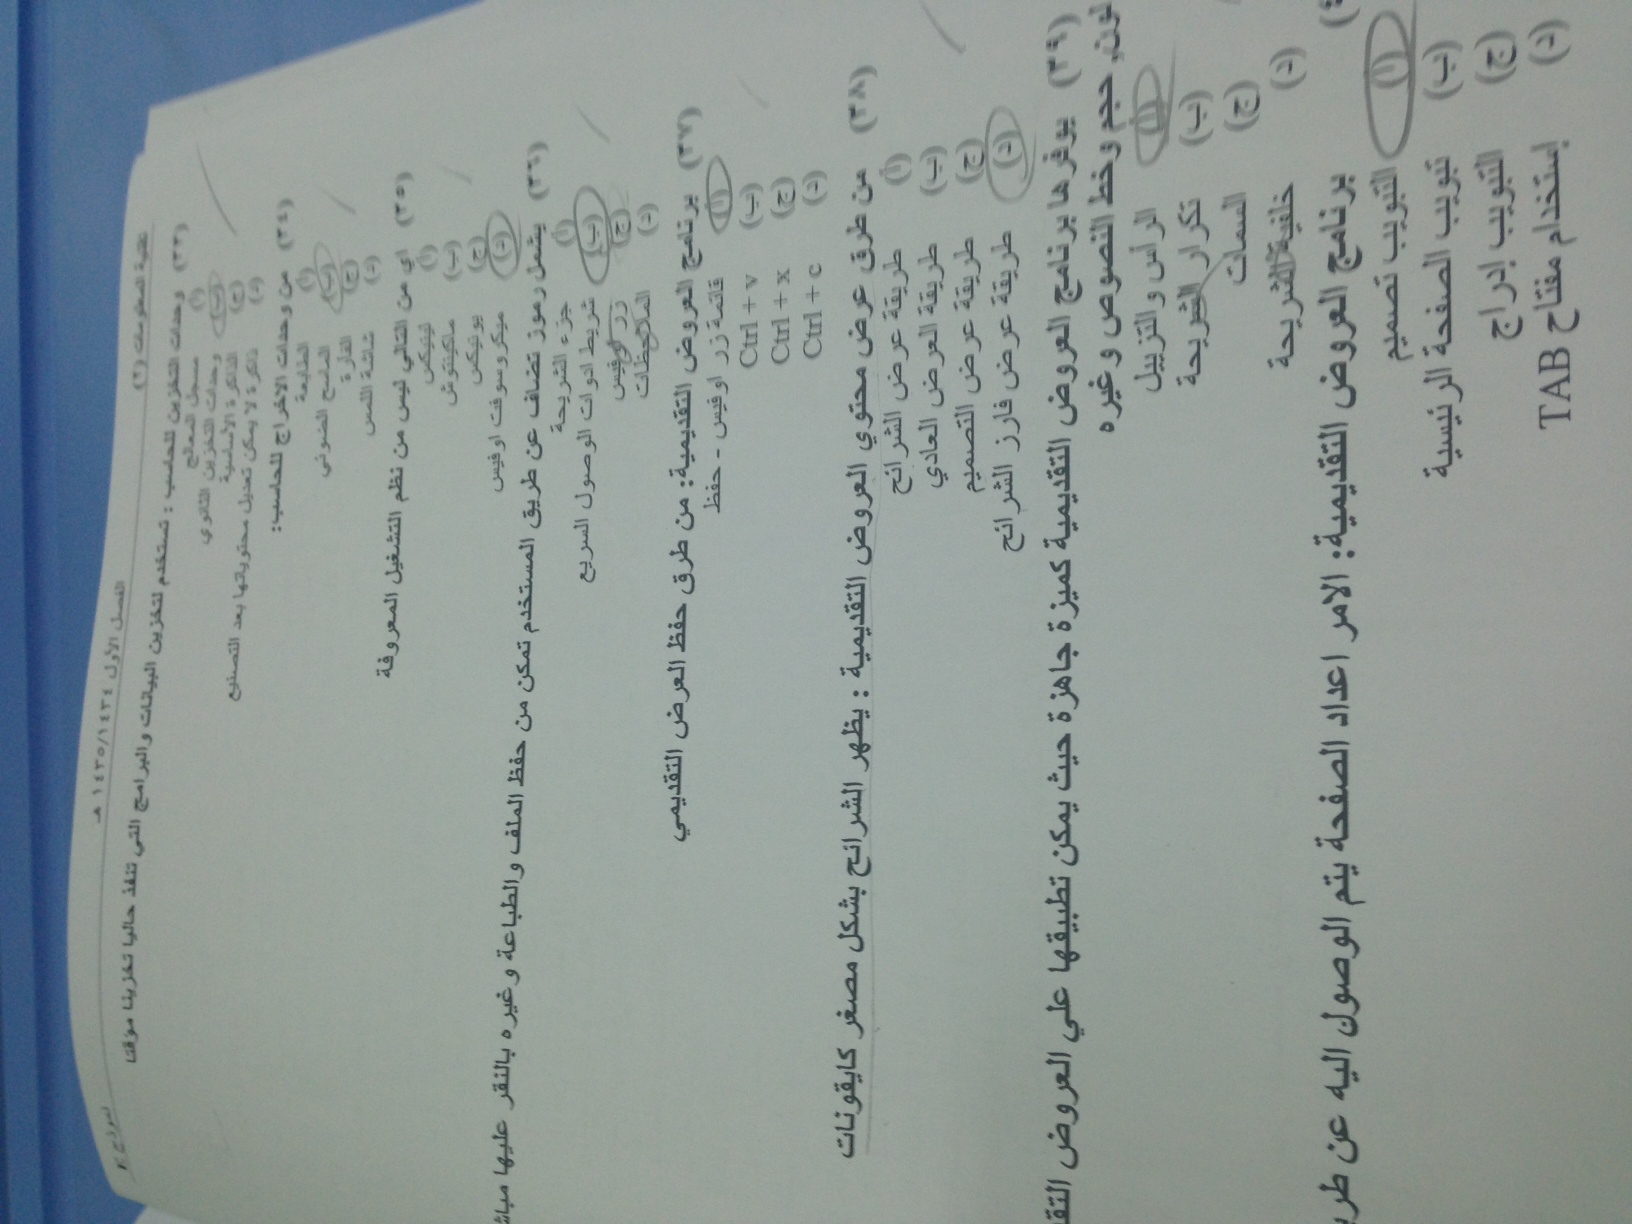 تقنية المعلومات (٢) الفصل الأول ١٤٣٥/١٤٣٤ هـ نموذج
(٣٣) وحدات التخزين للحاسب : تستخدم لتخزين البيانات والبرامج التي تنفذ حاليا تخزينا مؤقتا
(أ) مسجل المعالج
(ب) وحدات التخزين الثانوي
(ج) الذاكرة الأساسية
(د) ذاكرة لا يمكن تعديل محتوياتها بعد التصنيع
(٣٤) من وحدات الاخراج للحاسب:
(أ) الطابعة
(ب) الماسح الضوئي
(ج) الفارة
(د) شاشة اللمس
(٣٥) اي من التالي ليس من نظم التشغيل المعروفة
(أ) لينيكس
(ب) ماكينتوش
(ج) يونيكس
(د) ميكروسوفت اوفيس
(٣٦) يشمل رموز تضاف عن طريق المستخدم تمكن من حفظ الملف والطباعة وغيره بالنقر عليها
(أ) جزء الشريحة
(ب) شريط ادوات الوصول السريع
(ج) زر اوفيس
(د) الملاحظات
(٣٧) برنامج العروض التقديمية: من طرق حفظ العرض التقديمي
(أ) قائمة زر اوفيس - حفظ
(ب) Ctrl + v
(ج) Ctrl + x
(د) Ctrl + c
(٣٨) من طرق عرض محتوي العروض التقديمية : يظهر الشرائح بشكل مصغر كايقونات
(أ) طريقة عرض الشرائح
(ب) طريقة العرض العادي
(ج) طريقة عرض التصميم
(د) طريقة عرض فارز الشرائح
(٣٩) يوفرها برنامج العروض التقديمية كميزة جاهزة حيث يمكن تطبيقها علي العروض
حجم وخط النصوص وغيره
(أ) الرأس والتزييل
(ب) تكرار الشريحة
(ج) السمات
(د) خلفية الشريحة
برنامج العروض التقديمية: الامر اعداد الصفحة يتم الوصول اليه عن
(أ) التبويب تصميم
(ب) تبويب الصفحة الرئيسية
(ج) التبويب إدراج
(د) إستخدام مفتاح TAB